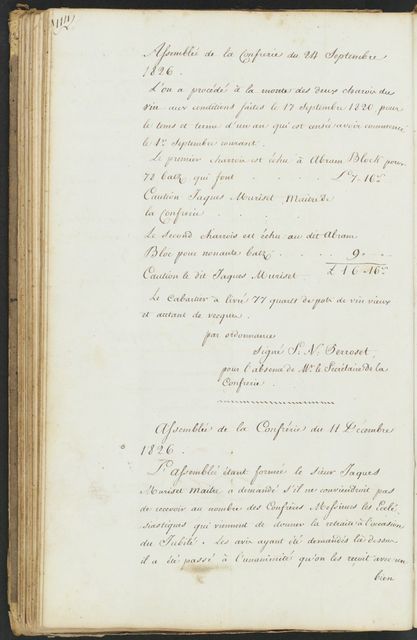 Assemblée de la Confrerie du 24 Septembre
1826.
L'on a procédé à la monte des deux charois du
vin aux conditions faites le 17 Septembre 1820 pour
le tems et terme d'un an qui est censé avoir commencé
le 1er Septembre courant.
Le premier charrois est échu à Abram Block pour
78 batz qui font L 7 16s
Caution Jaques Muriset Maitre de
la Confrerie
Le second charrois est échu au dit Abram
Bloc pour nonante batz 9
Caution le dit Jaques Muriset £ 16 16s
Le Cabartier a livré 77 quarts de pots de vin vieux
et autant de vecques.
par ordonnance
signé S. N. Perroset
pour l'absence de Mr le Secrétaire de la
Confrerie.
Assemblée de la Confrérie du 11 Décembre
1826.
L'assemblée étant formée le sieur Jaques
Muriset maitre a demandé s'il ne conviendroit pas
de recevoir au nombre des Confrères Messieurs les Eclé
siastiques qui viennent de donner la retraite à l'occasion
du Jubilé. Les avix ayant été demandés la dessus
il a été passé à l'unanimité qu'on les recoit avec un
bien